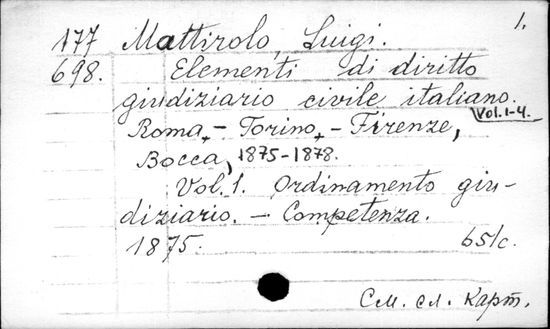 1.
177 Mattirolo, Luigi.
698. Elementi di diritto
giudiziario civile italiano.
Vol. 1-4.
Roma, - Torino, - Firenze,
Bocca, 1875-1878.
Vol. 1. Ordinamento giu-
diziario. - Competenza.
1875. 651c.
См. сл. карт.